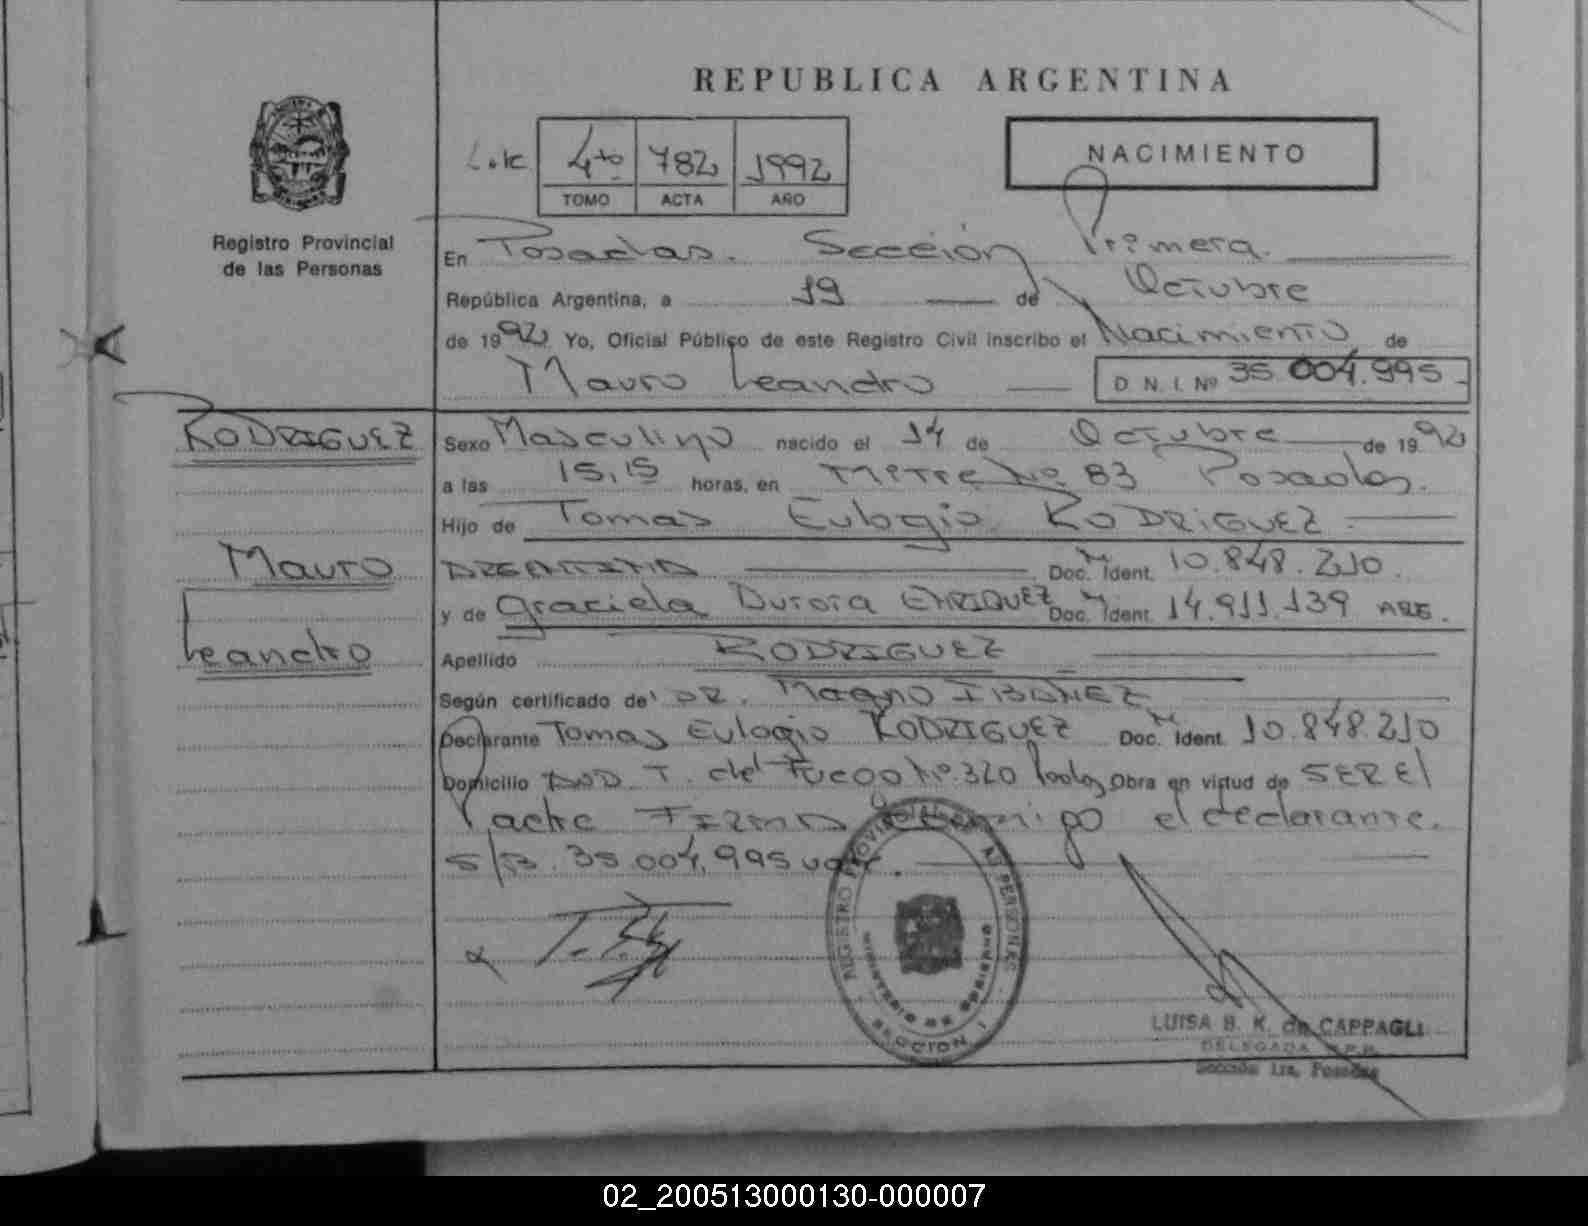 REPUBLICA ARGENTINA
4to 782 1992
TOMO ACTA AÑO
NACIMIENTO
Registro Provincial
de las Personas
En Posadas. Sección Primera.
República Argentina, a 19 de Octubre
de 1992 Yo, Oficial Público de este Registro Civil inscribo el Nacimiento de
Mauro Leandro D N I. Nº 35.004.995
RODRIGUEZ
Mauro
Leandro
Sexo Masculino nacido el 14 de Octubre de 1992
a las 15,15 horas, en Mitre Nº 83 Posadas.
Hijo de Tomas Eulogio RODRIGUEZ
ARGENTINA Doc. Ident. 10.848.210.
y de Graciela Aurora ENRIQUEZ Doc. Ident. 14.911.139 ARG.
Apellido RODRIGUEZ
Según certificado de DR. Magno IBAÑEZ
Declarante Tomas Eulogio RODRIGUEZ Doc. Ident. 10.848.210
Domicilio T. del Fuego Nº 320 Obra en virtud de SER El
Padre FIRMA Conmigo el declarante.
35.004.995
REGISTRO PROVINCIAL DE LAS PERSONAS
MINISTERIO DE GOBIERNO
SECCION I
LUISA B. K. de CAPPAGLI
DELEGADA R.P.P.
Sección 1ra. Posadas
02_200513000130-000007